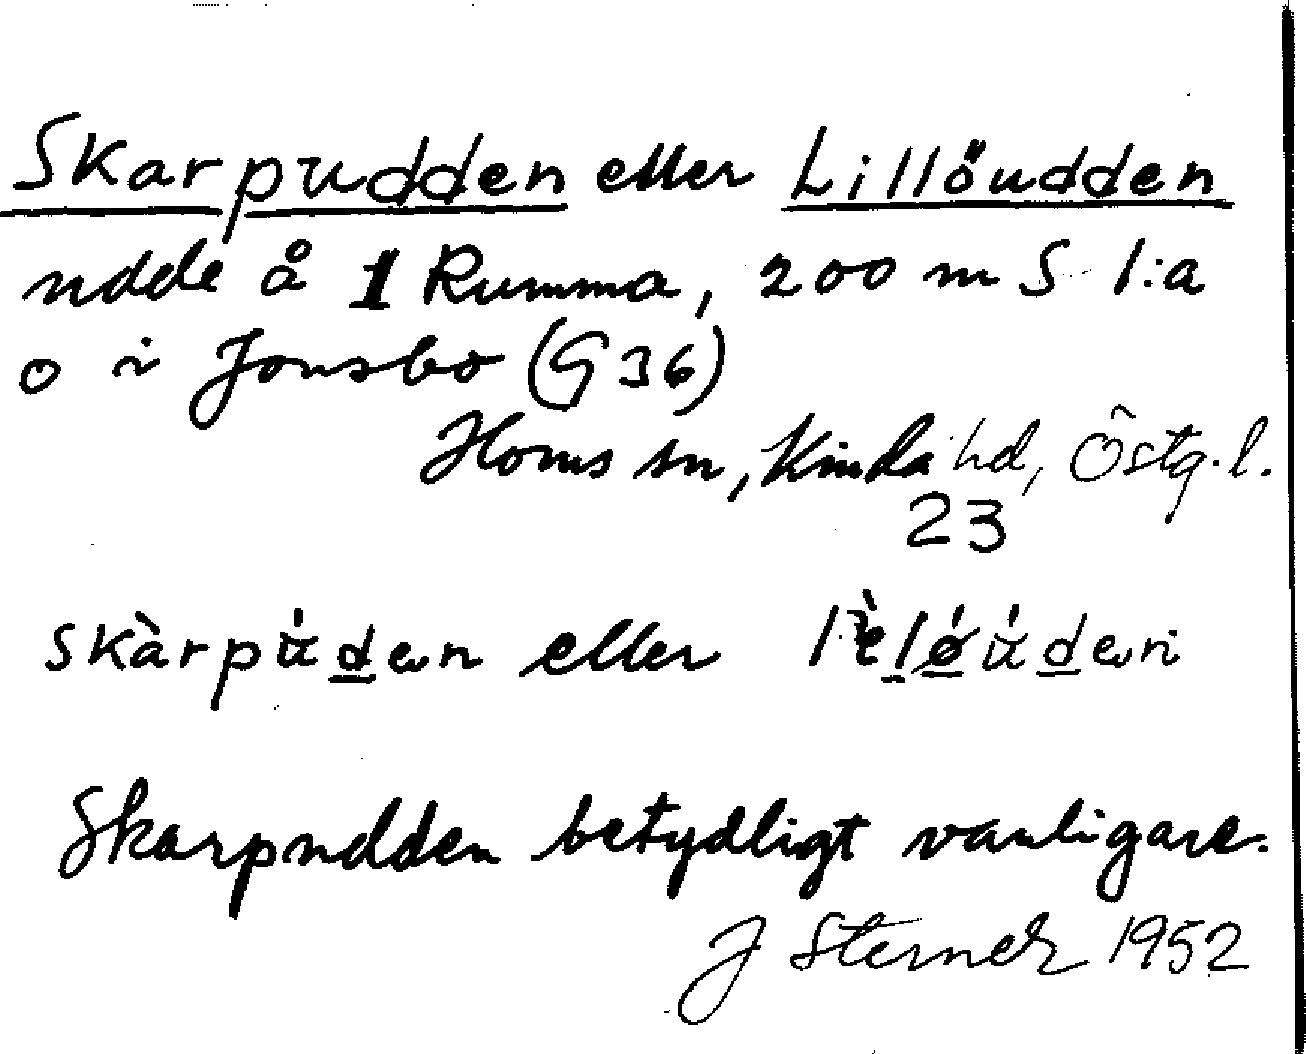 Skarpudden eller Lillöudden
udde å 1 Rumma, 200 m S l:a
o i Jonsbo (G 36)
Horns sn, Kinda hd, Östg. l.
23
skàrpúden eller
Skarpudden betydligt vanligare.
J Sterner 1952